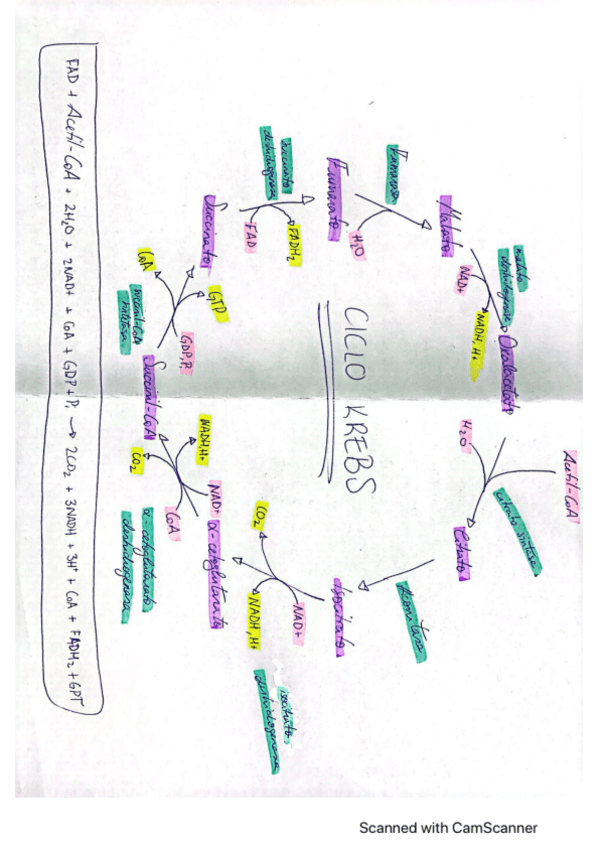 CICLO KREBS
Acetil-CoA
citrato sintasa
H₂O
Citrato
Aconitasa
Isocitrato
isocitrato
deshidrogenasa
NAD+
NADH, H+
CO₂
α-cetoglutarato
α-cetoglutarato
deshidrogenasa
NAD+
CoA
NADH, H+
CO₂
Succinil-CoA
succinil-CoA
sintetasa
GDP, Pi
GTP
CoA
Succinato
succinato
deshidrogenasa
FAD
FADH₂
Fumarato
Fumarasa
H₂O
Malato
malato
deshidrogenasa
NAD+
NADH, H+
Oxalacetato
FAD + Acetil-CoA + 2H₂O + 2NAD+ + CoA + GDP + Pi → 2CO₂ + 3NADH + 3H⁺ + CoA + FADH₂ + GPT
Scanned with CamScanner